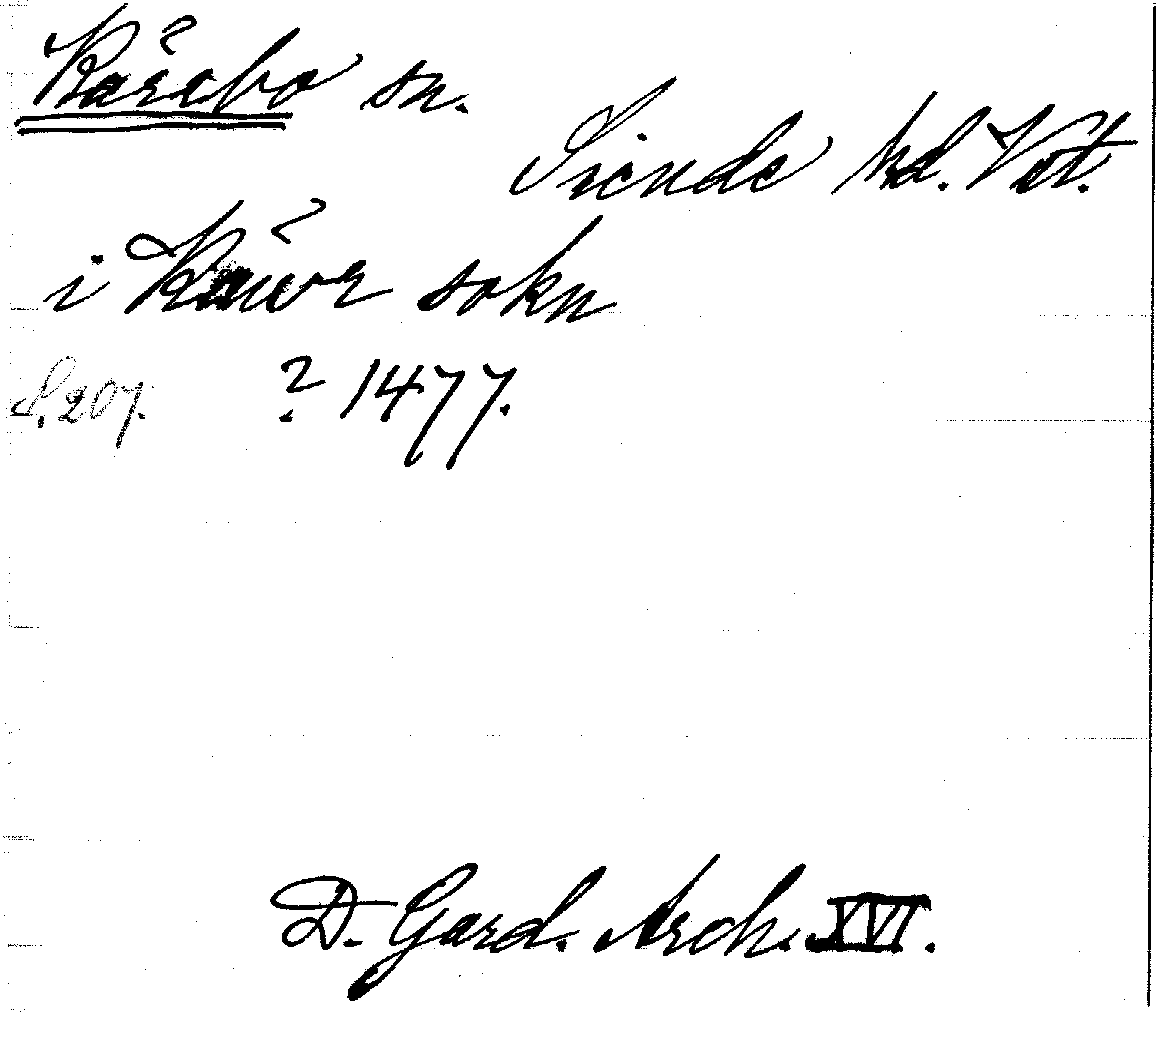 Kärrbo sn.
Siende hd. Vst.
i sokn
S. 207. ? 1477.
D. Gard. Arch. XVI.